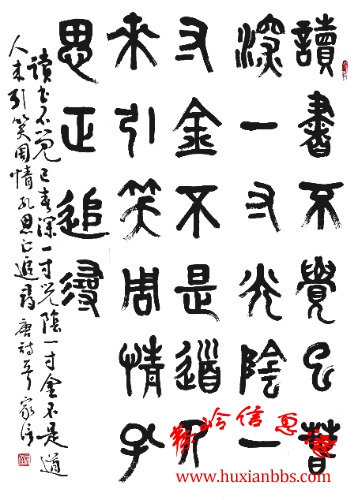 讀書不覺已春
深一寸光陰一
寸金不是道人
來引笑周情孔
思正追尋
讀书不觉已春深一寸光陰一寸金不是道
人来引笑周情孔思正追尋唐詩
信息
www.huxianbbs.com